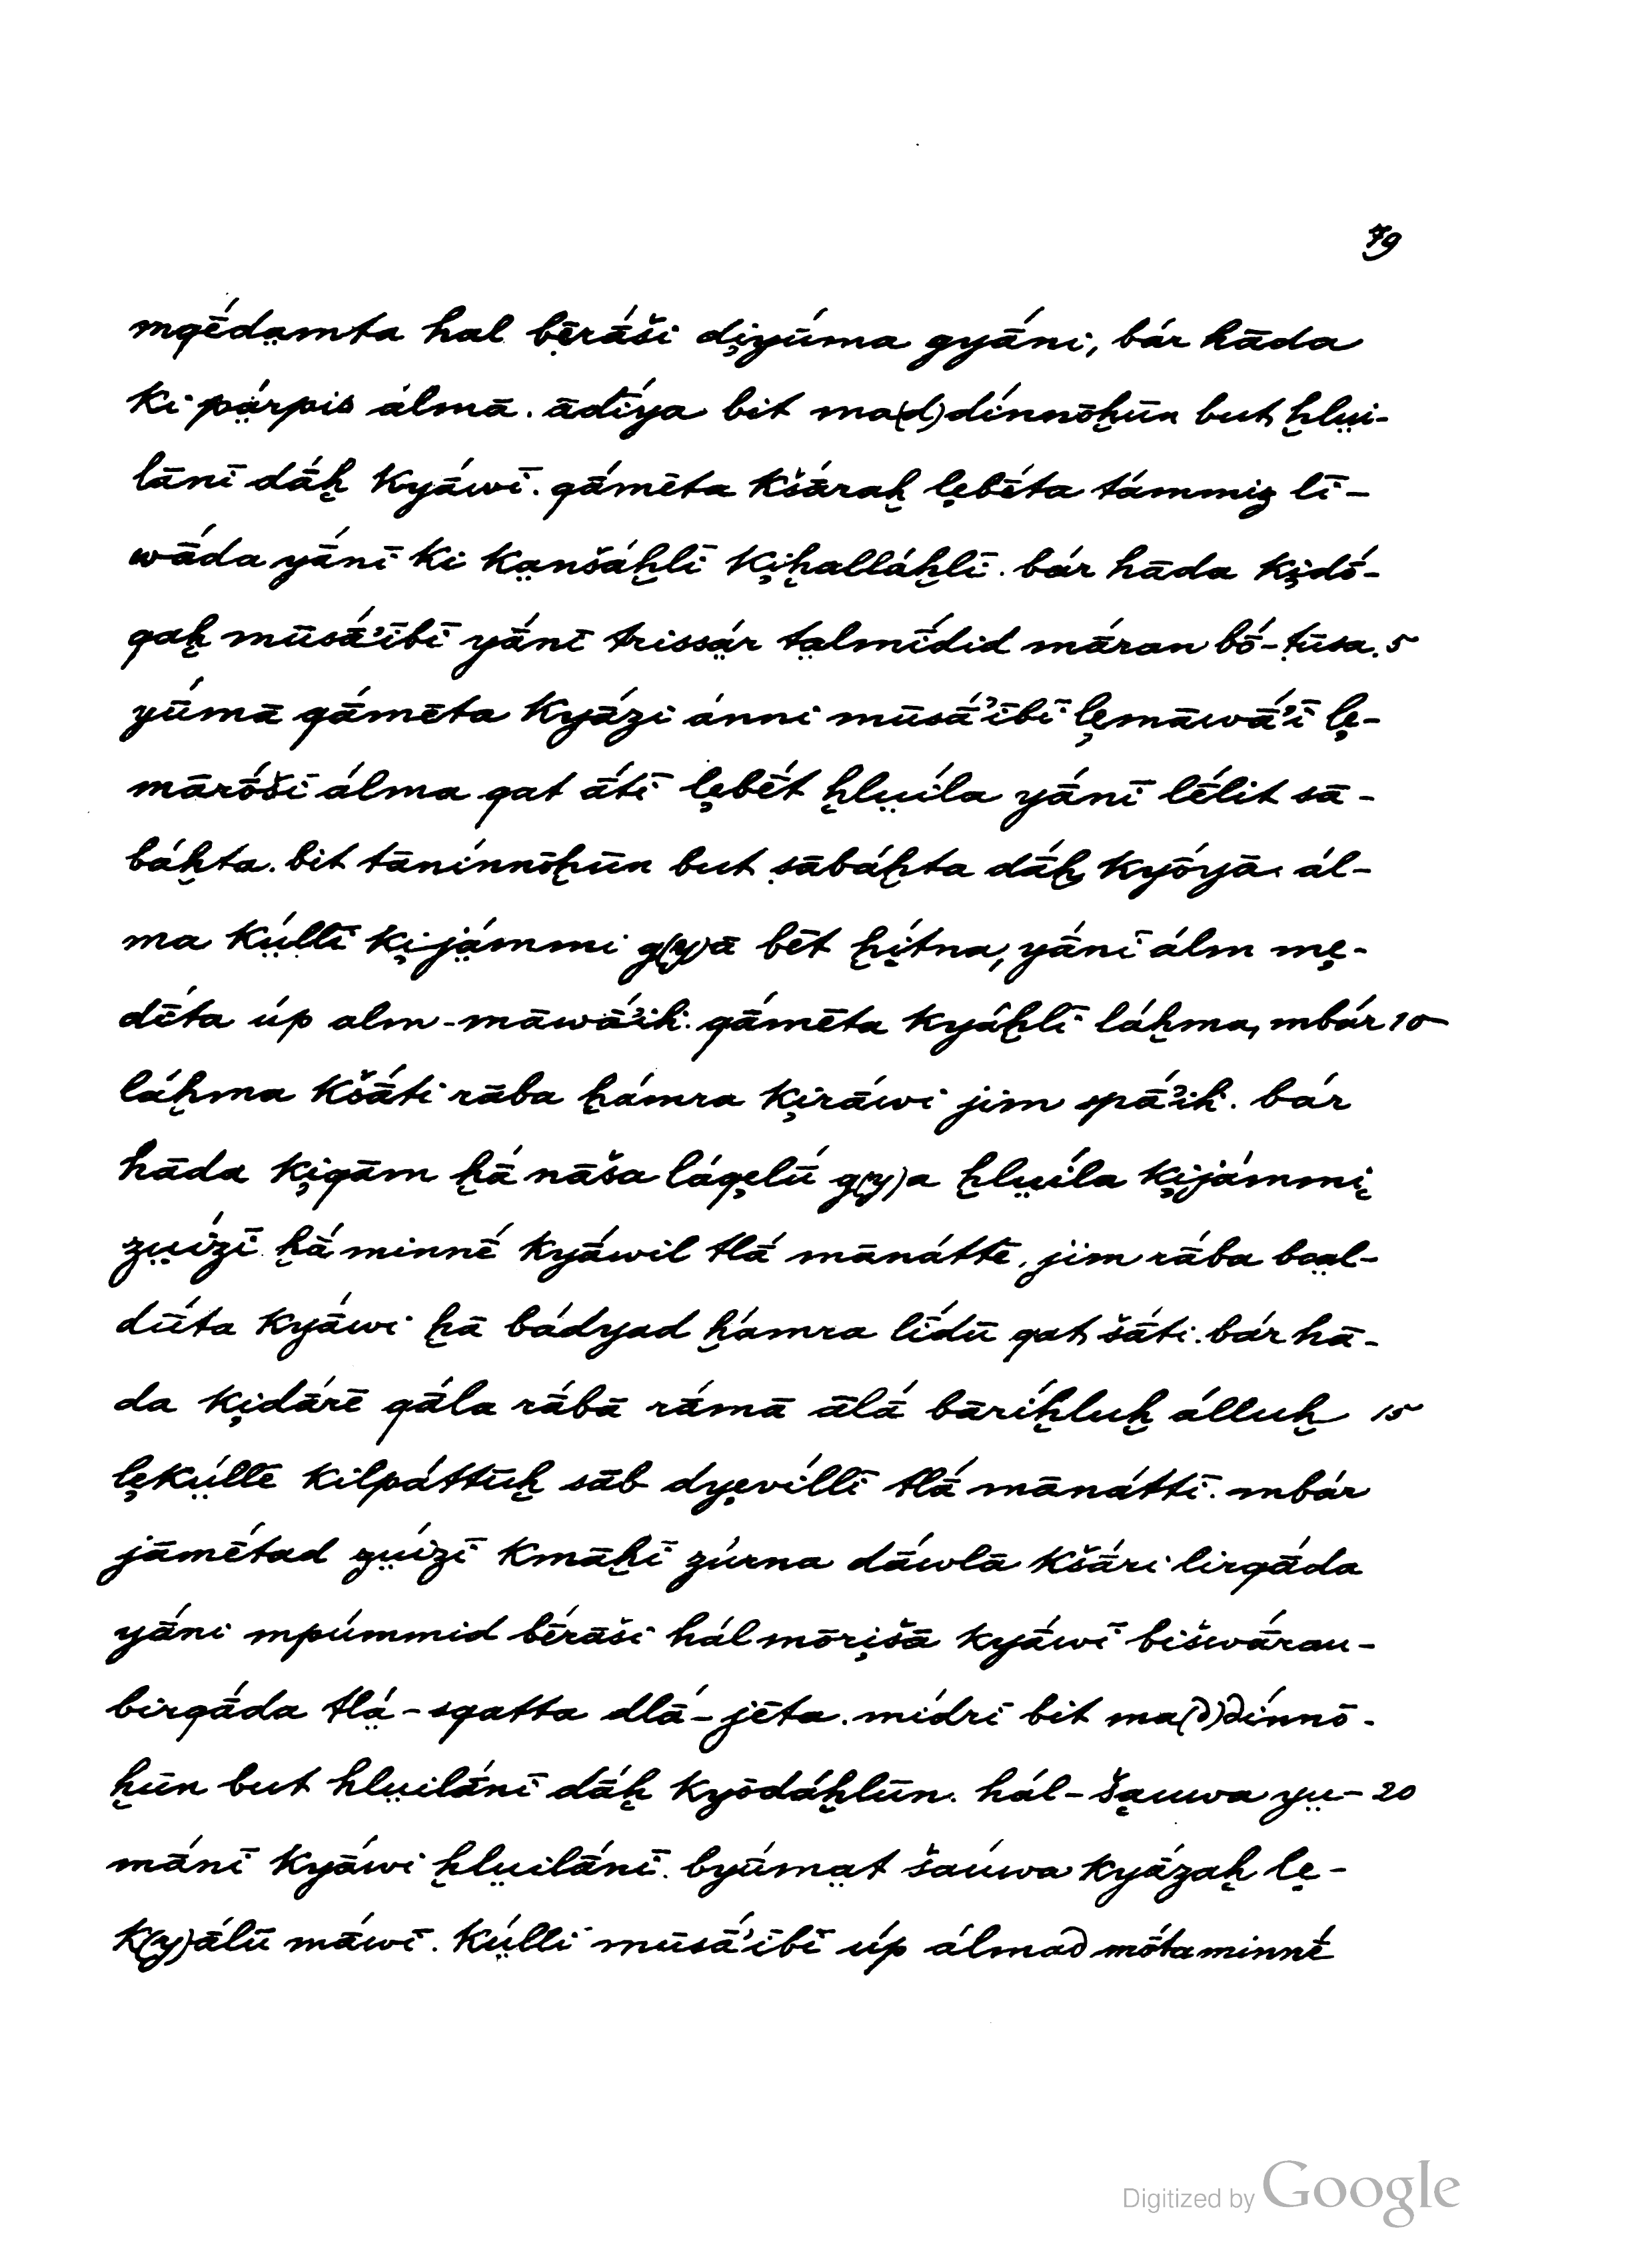 79
mqḗda̤mta hal bērā́ši di̜yū́ma gyā́ni, bár hāda
ki pä́rpis álmā. ādī́ya bit ma(d)dínnōḫūn but ḫlṳi-
lānī dā́ḫ kyā́wī. qā́mēta kšā́raḫ le̜bḗta támmiz lī-
wā́da yā́nī ki ka̤nšáḫlī ki̜ḫalláḫlī. bár hāda ki̜dṓ-
qaḫ mūsā́'ībī yā́nī trissä́r ta̤lmī́did māran bṓ-ṭūsa. 5
yū́mā qā́mēta kyā́zi ánni mūsā́'ībī le̜māwā́'ī le̜-
mārṓšī álma qat ā́tī le̜bḗt ḫlṳíla yā́nī lḗlit sā-
báḫta. bit tānínnōḫūn but sābáḫta dā́ḫ kyṓyā. ál-
ma kṳ́llī ki̜jä́mmi g(y)ā bēt ḫí̤tna, yā́nī álm me̜-
dḗta úp alm-māwā́'iḫ. qā́mēta kyáḫlī láḫma, mbár 10
láḫma kšā́ti rāba ḫámra ki̜rā́wi jim spā́'iḫ. bár
hāda ki̜qām ḫā́ nāša láqe̜lū g(y)a ḫlṳíla ki̜jámmi̜
zṳízī ḫā́ minnḗ kyā́wil tlā́ mānáttē, jim rāba ba̤l-
dūta kyā́wi ḫā bádyad ḫámra lī́dū qat šāti. bár hā-
da ki̜dā́rē qā́la rā́bā rámā ālā́ bāríḫluḫ álluḫ 15
le̜kṳ́llē kilpáttūḫ sāb dye̜víllī tlā́ mānáttī. mbár
jāmḗtad zṳízī kmāḫī́ zúrna dáwlā kšā́ri lirqā́da
yā́ni mpúmmid bḗrāši hál mōri̜šā kyā́wī bišwā́rau-
birqā́da tlä́-sqatta dlā-jēta. mídrī bit ma(d)dínnō-
ḫūn but hlṳilā́nī dā́ḫ kyōdáḫlūn. hál-ša̜uwa yṳ- 20
mā́nī kyā́wi ḫlṳilā́nī. byū́ma̤t šaúwa kyā́zaḫ le̜-
k(y)ālū mā́wī. kṳ́lli mūsā́'ībī úp álmad mṓta minnḗ
Digitized by Google